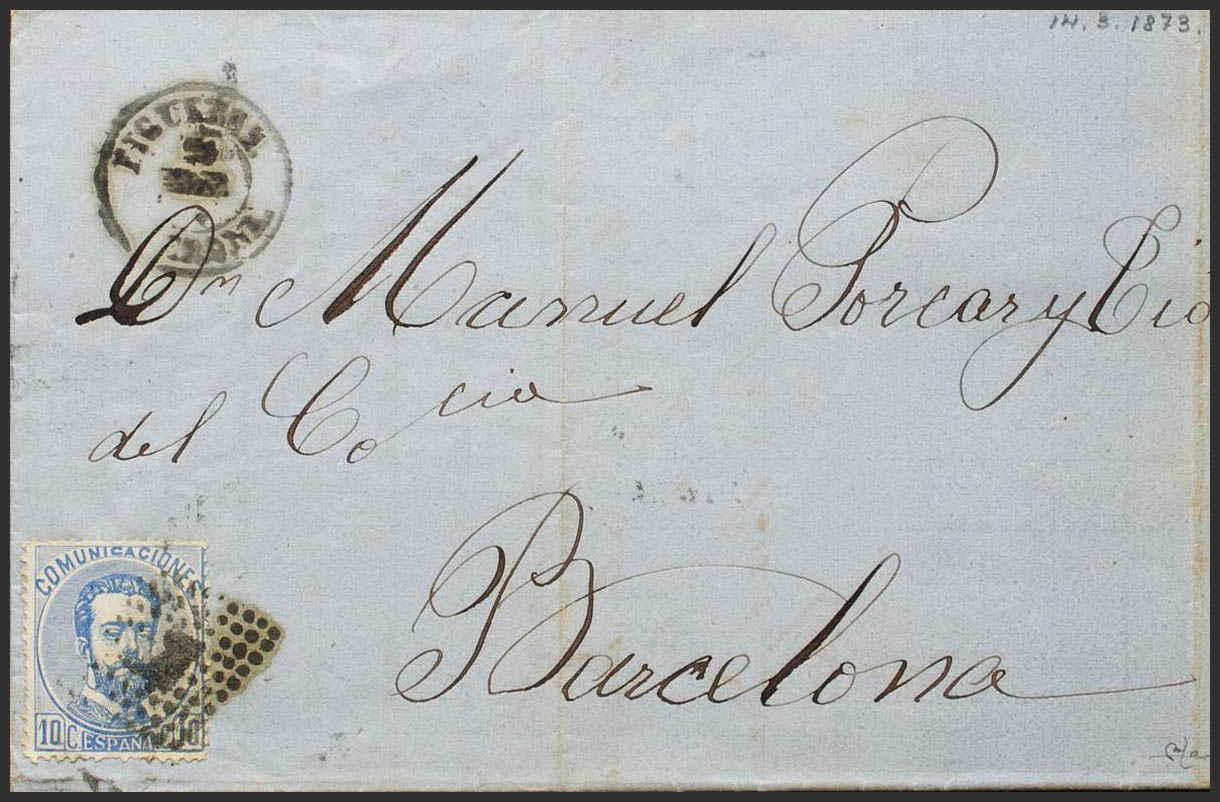 14.3.1873.
Dn Manuel Porcar y Tió
del Cocio
Barcelona
COMUNICACIONES
10 C. ESPAÑA 10